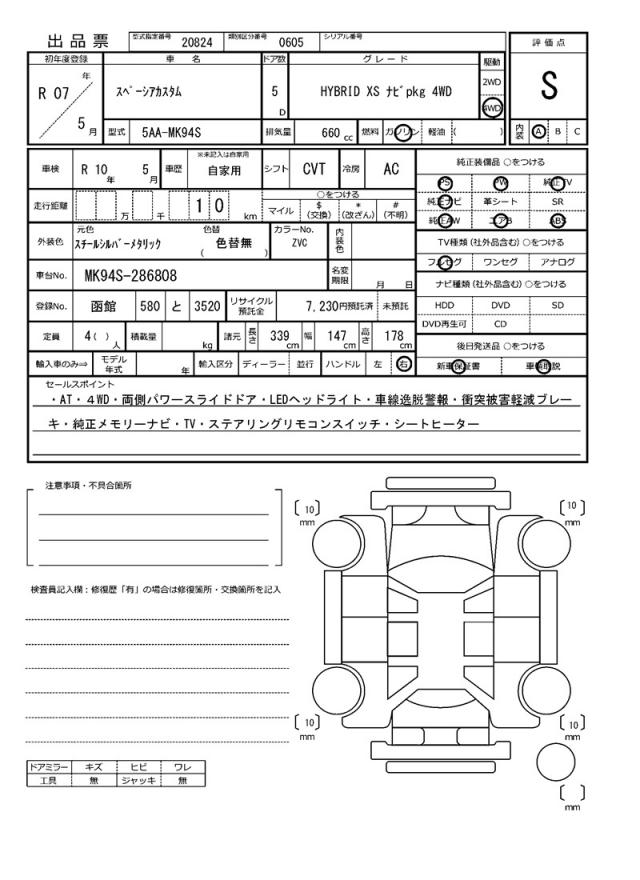 出品票 型式指定番号 20824 類別区分番号 0605 シリアル番号
初年度登録 車名 ドア数 グレード 駆動 評価点
R 07 年 5 月 スペーシアカスタム 5 D HYBRID XS ナビpkg 4WD 2WD 4WD S
型式 5AA-MK94S 排気量 660 cc 燃料 ガソリン 軽油 ( ) 内装 A B C
車検 R 10 年 5 月 車歴 ※未記入は自家用 自家用 シフト CVT 冷房 AC
純正装備品 ○をつける
PS PW 純正TV
純正ナビ 革シート SR
純正AW エアB ABS
走行距離 万 千 1 0 km ○をつける マイル $(交換) *(改ざん) #(不明)
外装色 元色 スチールシルバーメタリック 色替 ( 色替無 ) カラーNo. ZVC 内装色
TV種類(社外品含む)○をつける
フルセグ ワンセグ アナログ
車台No. MK94S-286808 名変期限 月 日
ナビ種類(社外品含む)○をつける
HDD DVD SD
DVD再生可 CD
登録No. 函館 580 と 3520 リサイクル預託金 7,230円預託済 未預託
定員 4( )人 積載量 kg 諸元 長さ 339 cm 幅 147 cm 高さ 178 cm
後日発送品 ○をつける
新車保証書 車輌取説
輸入車のみ⇒ モデル年式 年 輸入区分 ディーラー 並行 ハンドル 左 右
セールスポイント
・AT・4WD・両側パワースライドドア・LEDヘッドライト・車線逸脱警報・衝突被害軽減ブレー
キ・純正メモリーナビ・TV・ステアリングリモコンスイッチ・シートヒーター
注意事項・不具合箇所
〔10〕mm 〔10〕mm
検査員記入欄:修復歴「有」の場合は修復箇所・交換箇所を記入
〔10〕mm 〔10〕mm
ドアミラー キズ ヒビ ワレ
工具 無 ジャッキ 無
〔 〕mm